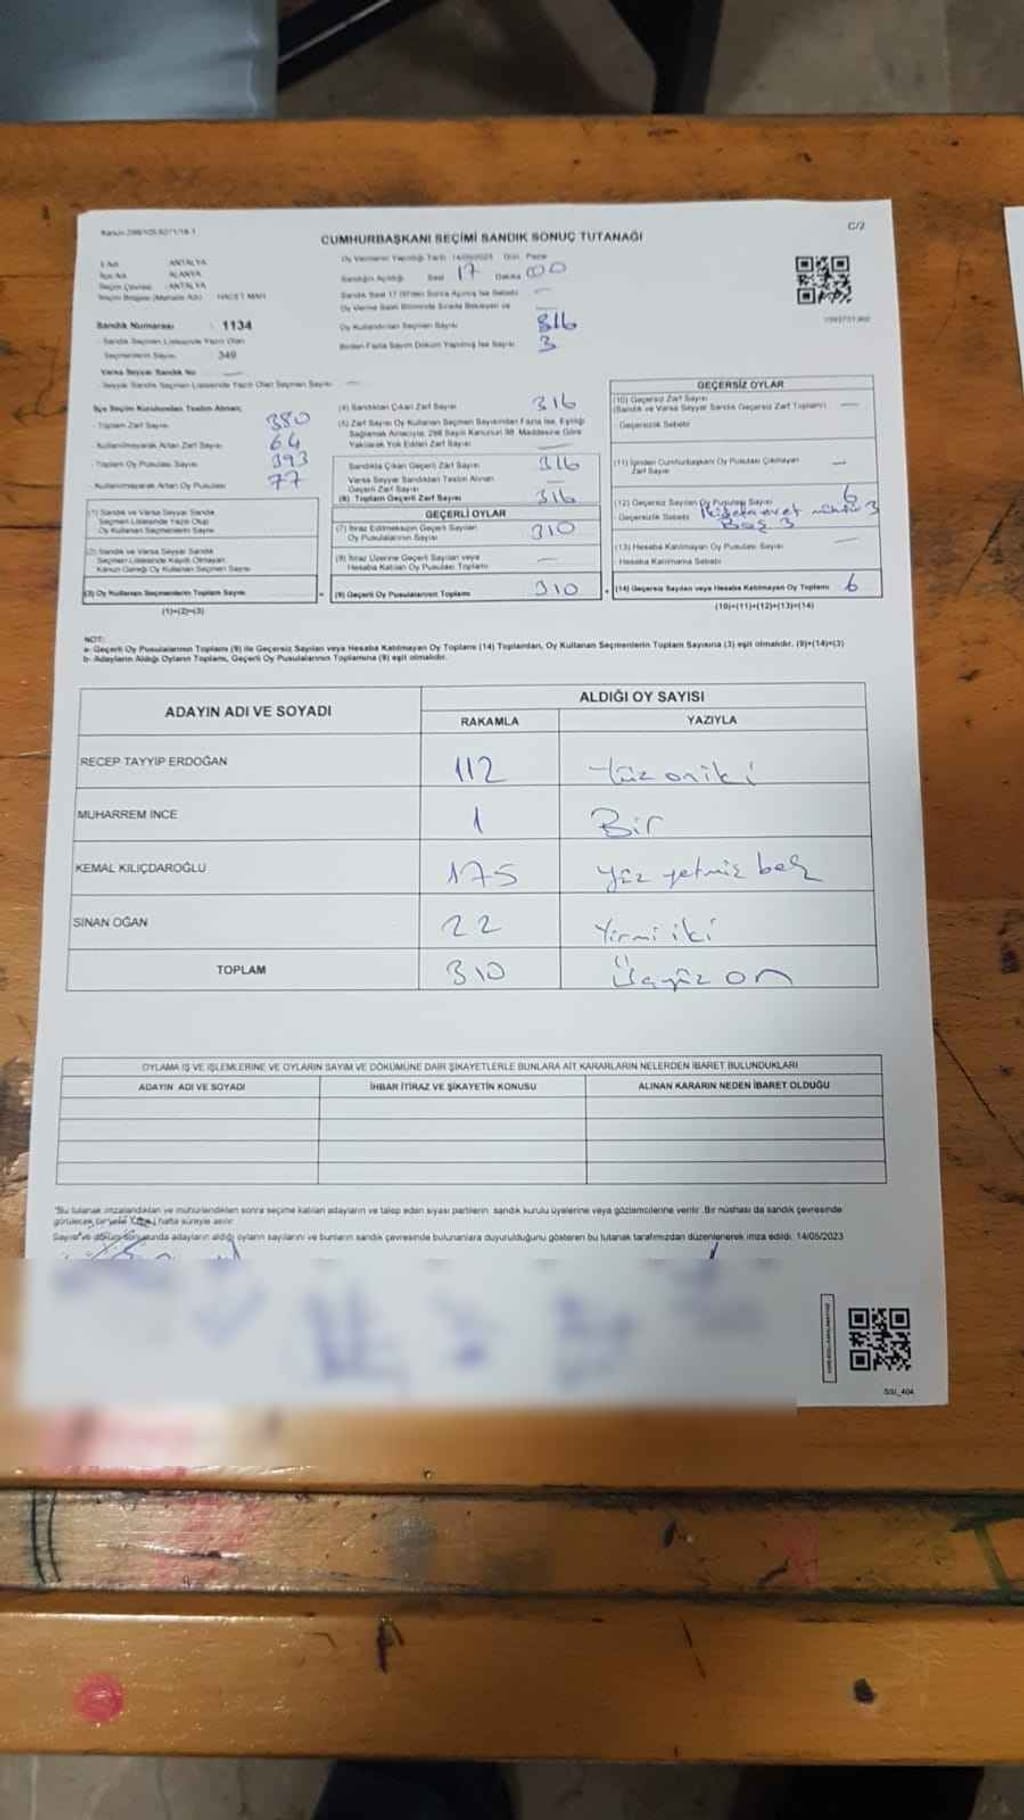 C/2
CUMHURBAŞKANI SEÇİMİ SANDIK SONUÇ TUTANAĞI
Oy Vermenin Yapıldığı Tarih 14/05/2023 Gün Pazar
İl Adı ANTALYA
İlçe Adı ALANYA
Seçim Çevresi ANTALYA
Seçim Bölgesi (Mahalle Adı) HACET MAH
Sandığın Açıldığı Saat 17 Dakika 00
Oy Kullandırılan Seçmen Sayısı 316
Birden Fazla Sayım Döküm Yapılmış İse Sayısı 3
Sandık Numarası : 1134
Sandık Seçmen Listesinde Yazılı Olan
Seçmenlerin Sayısı 349
Varsa Seyyar Sandık No
Seyyar Sandık Seçmen Listesinde Yazılı Olan Seçmen Sayısı
İlçe Seçim Kurulundan Teslim Alınan;
Toplam Zarf Sayısı 380
Kullanılmayarak Artan Zarf Sayısı 64
Toplam Oy Pusulası Sayısı 393
Kullanılmayarak Artan Oy Pusulası 77
(1) Sandık ve Varsa Seyyar Sandık
Seçmen Listesinde Yazılı Olup
Oy Kullanan Seçmenlerin Sayısı
(2) Sandık ve Varsa Seyyar Sandık
Seçmen Listesinde Kayıtlı Olmayan
Kanun Gereği Oy Kullanan Seçmen Sayısı
(3) Oy Kullanan Seçmenlerin Toplam Sayısı
(1)+(2)=(3)
(4) Sandıktan Çıkan Zarf Sayısı 316
(5) Zarf Sayısı Oy Kullanan Seçmen Sayısından Fazla İse, Eşitliği
Sağlamak Amacıyla, 298 Sayılı Kanunun 98. Maddesine Göre
Yakılarak Yok Edilen Zarf Sayısı
Sandıkta Çıkan Geçerli Zarf Sayısı 316
Varsa Seyyar Sandıktan Teslim Alınan
Geçerli Zarf Sayısı
(6) Toplam Geçerli Zarf Sayısı 316
GEÇERLİ OYLAR
(7) İtiraz Edilmeksizin Geçerli Sayılan
Oy Pusulalarının Sayısı 310
(8) İtiraz Üzerine Geçerli Sayılan veya
Hesaba Katılan Oy Pusulası Toplamı
(9) Geçerli Oy Pusulalarının Toplamı 310
GEÇERSİZ OYLAR
(10) Geçersiz Zarf Sayısı
(Sandık ve Varsa Seyyar Sandık Geçersiz Zarf Toplamı)
Geçersizlik Sebebi
(11) İçinden Cumhurbaşkanı Oy Pusulası Çıkmayan
Zarf Sayısı
(12) Geçersiz Sayılan Oy Pusulası Sayısı 6
Geçersizlik Sebebi evet mührü 3
Boş 3
(13) Hesaba Katılmayan Oy Pusulası Sayısı
Hesaba Katılmama Sebebi
(14) Geçersiz Sayılan veya Hesaba Katılmayan Oy Toplamı 6
(10)+(11)+(12)+(13)=(14)
NOT:
a- Geçerli Oy Pusulalarının Toplamı (9) ile Geçersiz Sayılan veya Hesaba Katılmayan Oy Toplamı (14) Toplamları, Oy Kullanan Seçmenlerin Toplam Sayısına (3) eşit olmalıdır. (9)+(14)=(3)
b- Adayların Aldığı Oyların Toplamı, Geçerli Oy Pusulalarının Toplamına (9) eşit olmalıdır.
ADAYIN ADI VE SOYADI
ALDIĞI OY SAYISI
RAKAMLA YAZIYLA
RECEP TAYYİP ERDOĞAN 112 Yüz oniki
MUHARREM İNCE 1 Bir
KEMAL KILIÇDAROĞLU 175 Yüz yetmiş beş
SİNAN OĞAN 22 Yirmi iki
TOPLAM 310 Üçyüz on
OYLAMA İŞ VE İŞLEMLERİNE VE OYLARIN SAYIM VE DÖKÜMÜNE DAİR ŞİKAYETLERLE BUNLARA AİT KARARLARIN NELERDEN İBARET BULUNDUKLARI
ADAYIN ADI VE SOYADI İHBAR İTİRAZ VE ŞİKAYETİN KONUSU ALINAN KARARIN NEDEN İBARET OLDUĞU
*Bu tutanak imzalandıktan ve mühürlendikten sonra seçime katılan adayların ve talep eden siyasi partilerin sandık kurulu üyelerine veya gözlemcilerine verilir. Bir nüshası da sandık çevresinde
görülecek bir yere 1 (Bir) hafta süreyle asılır.
adayların aldığı oyların sayılarını ve bunların sandık çevresinde bulunanlara duyurulduğunu gösteren bu tutanak tarafımızdan düzenlenerek imza edildi. 14/05/2023
SSI_404